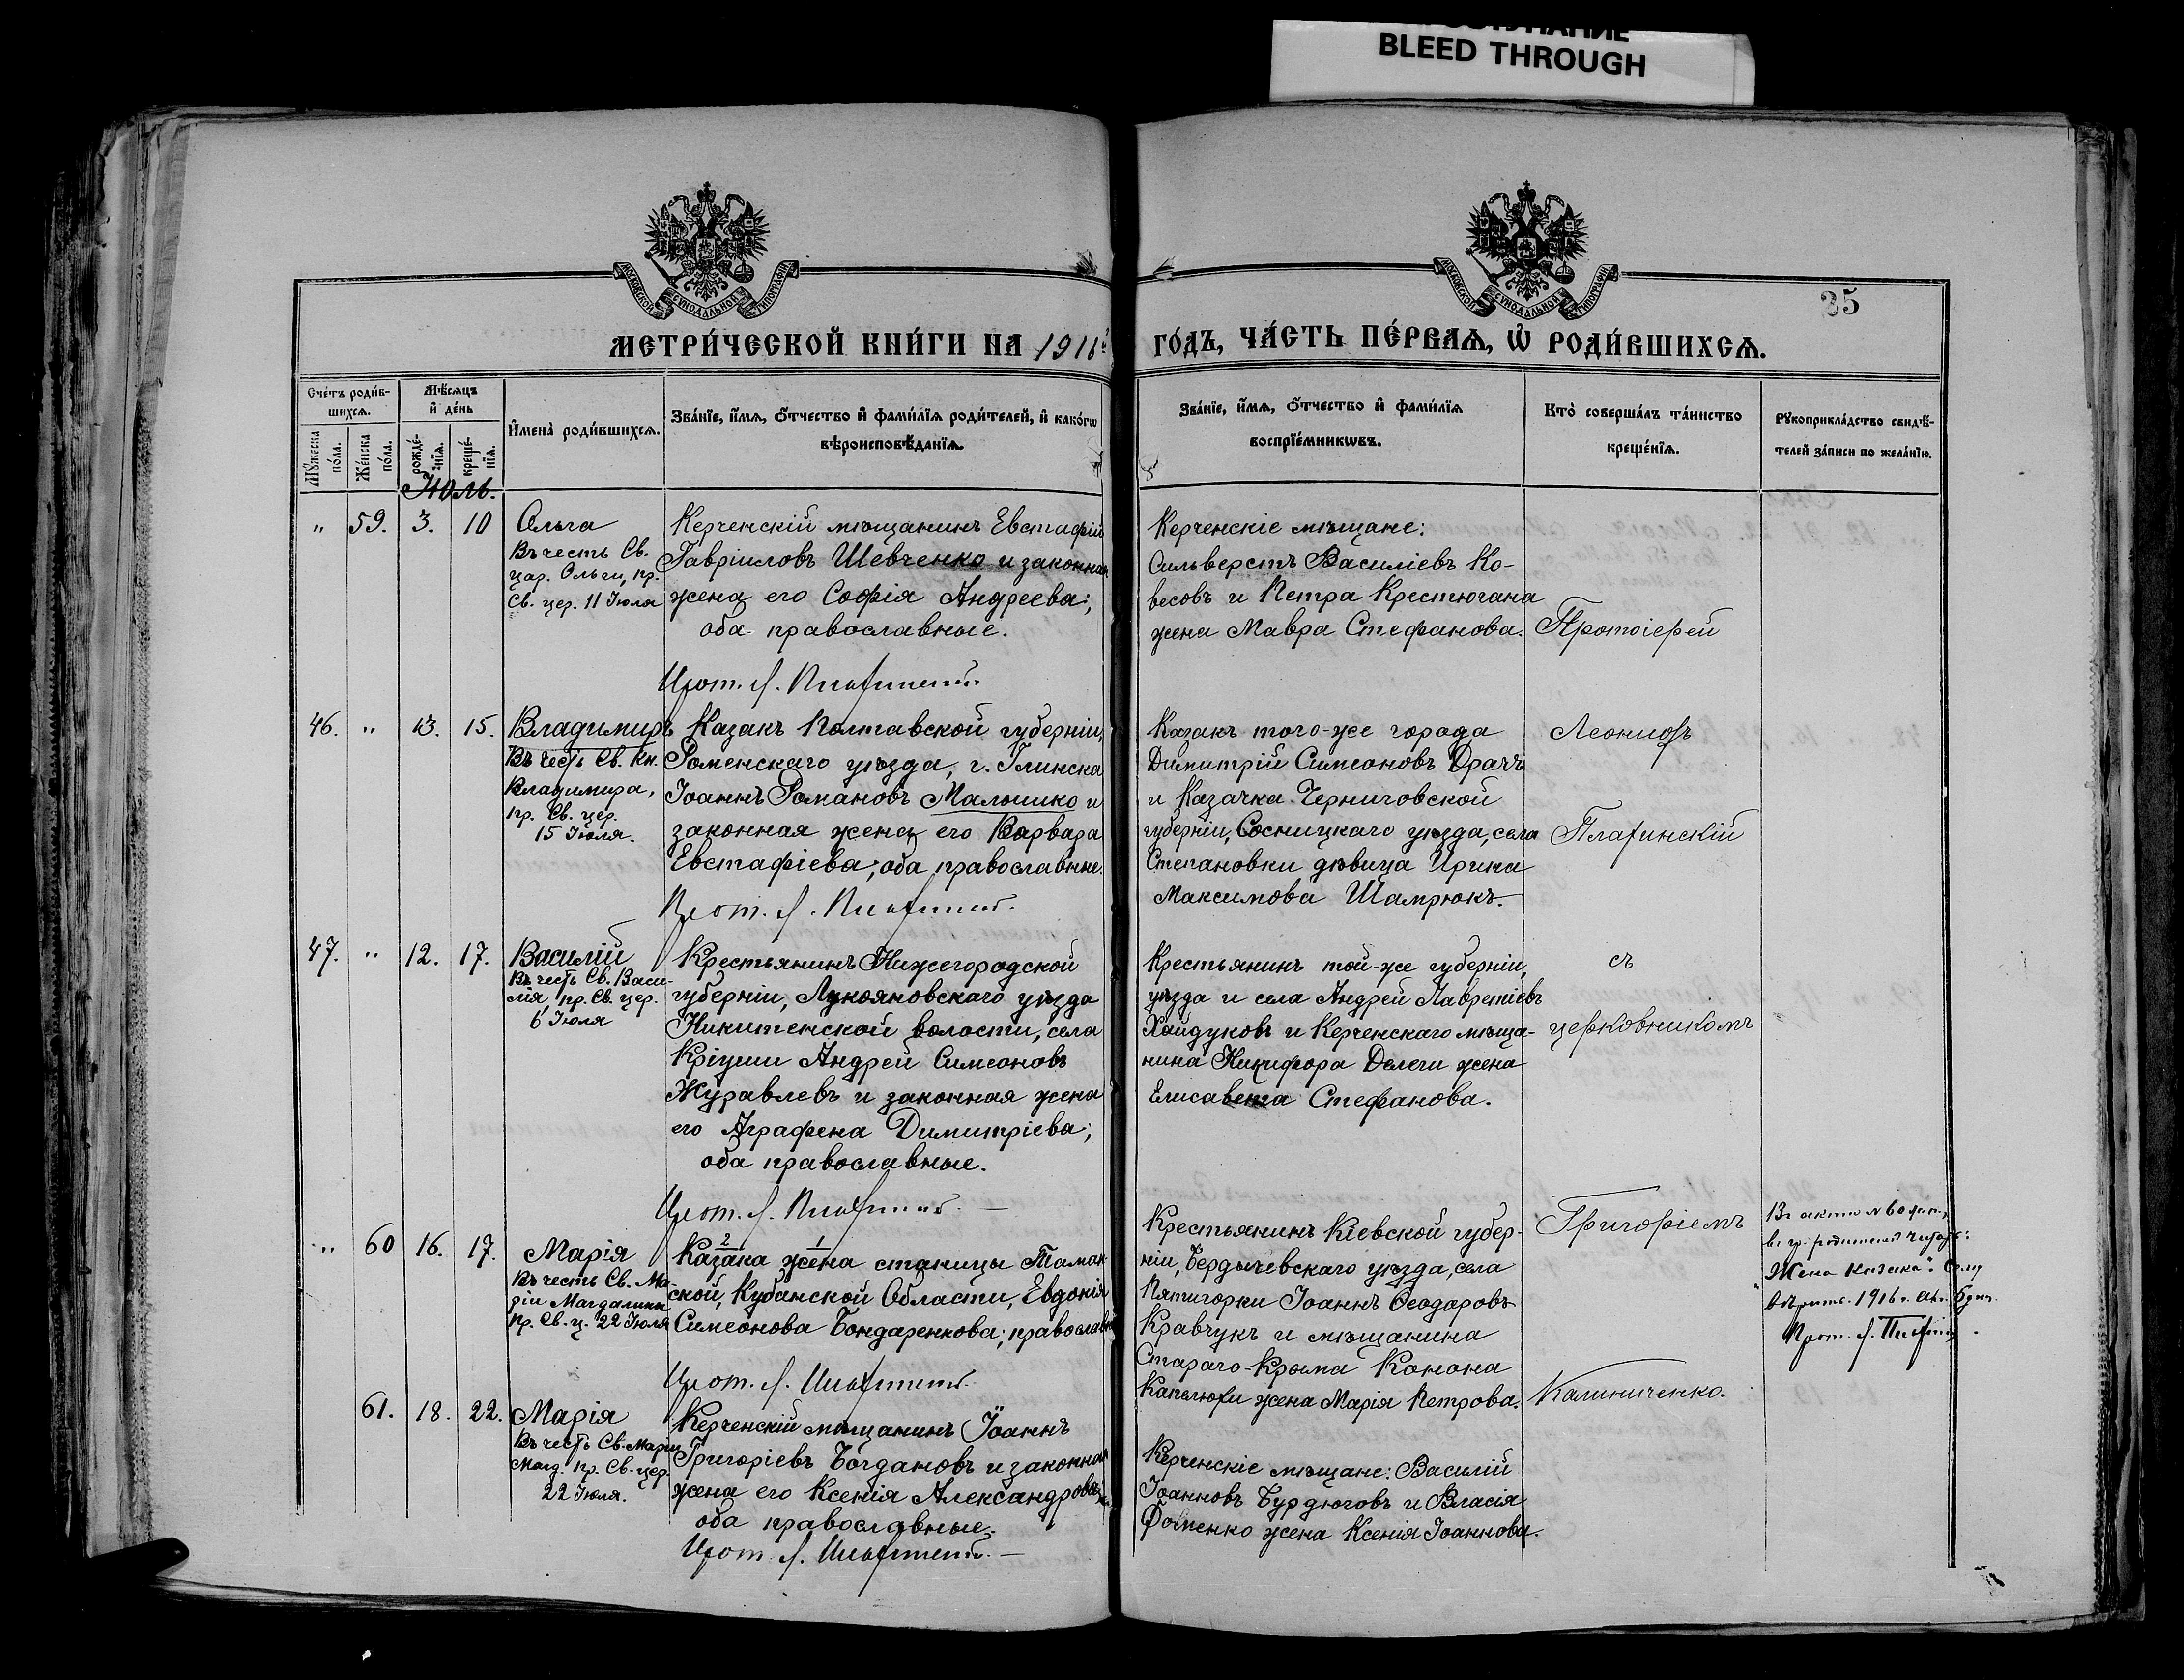 BLEED THROUGH
МОСКОВСКОЙ СѴНОДАЛЬНОЙ ТИПОГРАФІИ
МОСКОВСКОЙ СѴНОДАЛЬНОЙ ТИПОГРАФІИ
35
МЕТРИ́ЧЕСКОЙ КНИ́ГИ НА 1916 ГО́ДЪ, ЧА́СТЬ ПЕ́РВАѦ, Ѡ҆ РОДИ́ВШИХСѦ.
Сче́тъ роди́в-
шихсѧ.
Мѣ́сѧцъ
и҆ де́нь
Мꙋ́жеска
по́ла.
Же́нска
по́ла.
рожде́-
нїѧ.
креще́-
нїѧ.
И҆мена̀ роди́вшихсѧ.
Зва́нїе, и҆́мѧ, ѻ҆́тчество и҆ фами́лїѧ роди́телей, и҆ како́гѡ
вѣроисповѣ́данїѧ.
Зва́нїе, и҆́мѧ, ѻ҆́тчество и҆ фами́лїѧ
воспрїе́мникѡвъ.
Кто̀ соверша́лъ та́инство
креще́нїѧ.
Рꙋкоприкла́дство свидѣ́-
телей за́писи по жела́нїю.
Іюль.
" 59. 3. 10
Ольга
Въ честь Св.
цар. Ольги, пр.
Св. цер. 11 Іюля
Керченскій мѣщанинъ Евстафій
Гавріиловъ Шевченко и законная
жена его Софія Андреева;
оба православные.
Прот. Л.
Керченскіе мѣщане:
Сильверстъ Василіевъ Ко-
весовъ и Петра Крестюгана
жена Мавра Стефанова.
Протоіерей
46. " 13. 15.
Владимиръ
Въ честь Св. Кн.
Владимира,
пр. Св. цер.
15 Іюля.
Казакъ Полтавской губерніи,
Роменскаго уѣзда, г. Глинска
Іоаннъ Романовъ Малышко и
законная жена его Варвара
Евстафіева; оба православные.
Прот. Л.
Казакъ того-же города
Димитрій Симеоновъ Драчъ
и Казачка Черниговской
губерніи, Сосницкаго уѣзда, села
Степановки дѣвица Ирина
Максимова Шамрюкъ.
Леонидъ
Плагинскій
47. " 12. 17.
Василій
Въ честь Св. Васи-
лія, пр. Св. цер.
6 Іюля
Крестьянинъ Нижегородской
губерніи, Лукояновскаго уѣзда
Никитенской волости, села
Кріуши Андрей Симеоновъ
Журавлевъ и законная жена
его Аграфена Димитріева;
оба православные.
Прот. Л.
Крестьянинъ той-же губерніи,
уѣзда и села Андрей Лаврентіевъ
Хайдуковъ и Керченскаго мѣща-
нина Никифора Делеги жена
Елисавета Стефанова.
съ
церковникомъ
" 60 16. 17.
Марія
Въ честь Св. Ма-
ріи Магдалины
пр. Св. ц. 22 Іюля
2 1
Казака жена станицы Таман-
ской, Кубанской Области, Евдокія
Симеонова Бондаренкова; православн.
Прот. Л.
Крестьянинъ Кіевской губер-
ніи, Бердычевскаго уѣзда, села
Пятигорки Іоаннъ Ѳеодоровъ
Кравчукъ и мѣщанина
Стараго-Крыма Конона
Капелюхи жена Марія Петрова.
Григоріемъ
Калиниченко.
Въ актѣ № 60
въ гр. родителей
"Жена казака".
вѣрить. 1916 г.
Прот. Л.
61. 18. 22.
Марія
Въ честь Св. Маріи
Магд. пр. Св. цер.
22 Іюля.
Керченскій мѣщанинъ Іоаннъ
Григоріевъ Богдановъ и законная
жена его Ксенія Александрова;
оба православные.
Прот. Л.
Керченскіе мѣщане: Василій
Іоанновъ Бурдюговъ и Власія
Фоменко жена Ксенія Іоаннова.